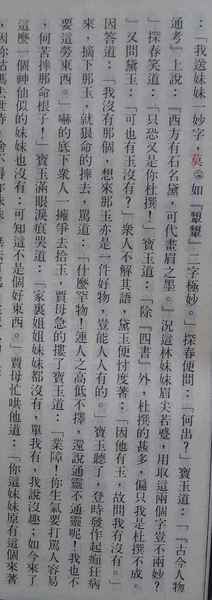 ：「我送妹妹一妙字，莫如『顰顰』二字極妙。」探春便問：「何出？」寶玉道：「『古今人物
通考』上說：『西方有石名黛，可代畫眉之墨。』況這林妹妹眉尖若蹙，用取這兩個字豈不兩妙？
」探春笑道：「只恐又是你杜撰！」寶玉道：「除『四書』外，杜撰的甚多，偏只我是杜撰不成。
」又問黛玉：「可也有玉沒有？」眾人不解其語，黛玉便忖度著：「因他有玉，故問我有沒有。」
因答道：「我沒有那個，想來那玉亦是一件好物，豈能人人有的。」寶玉聽了，登時發作起癡狂病
來，摘下那玉，就狠命的摔去，罵道：「什麼罕物！連人之高低不擇，還說通靈不通靈呢！我也不
要這勞東西。」嚇的底下眾人一擁爭去拾玉。賈母急的摟了寶玉道：「業障！你生氣要打罵人容易
，何苦摔那命根子！」寶玉滿眼淚痕哭道：「家裏姐姐妹妹都沒有，單我有，我說沒趣；如今來了
這麼一個神仙似的妹妹也沒有：可知這不是個好東西。」賈母忙哄他道：「你這妹妹原有這個來著